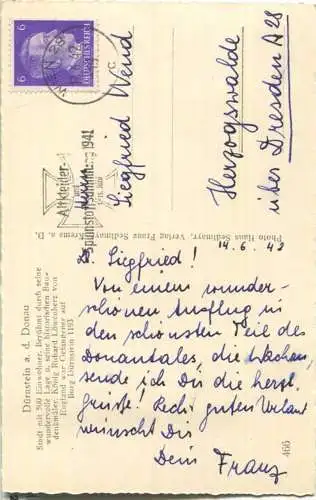 6
6
DEUTSCHES REICH
Altkleider-
und
Spinnstoffsammlung 1941
c
Herrn
Siegfried Wend
Herzogswalde
über Dresden A 28
Photo Hans Sedlmayr, Verlag Franz Sedlmayr, Krems a. D.
14. 6. 42
L. Siegfried!
Von einem wunder-
schönen Ausflug in
den schönsten Teil des
Donautales, die Wachau,
sende ich Dir die herzl.
Grüße! Recht guten Urlaub
wünscht Dir
Dein Franz
Dürnstein a. d. Donau
Stadt mit 560 Einwohner. Berühmt durch seine
wundervolle Lage u. seine historischen Bau-
denkmäler. König Richard Löwenherz von
England war Gefangener auf
Burg Dürnstein 1193
466